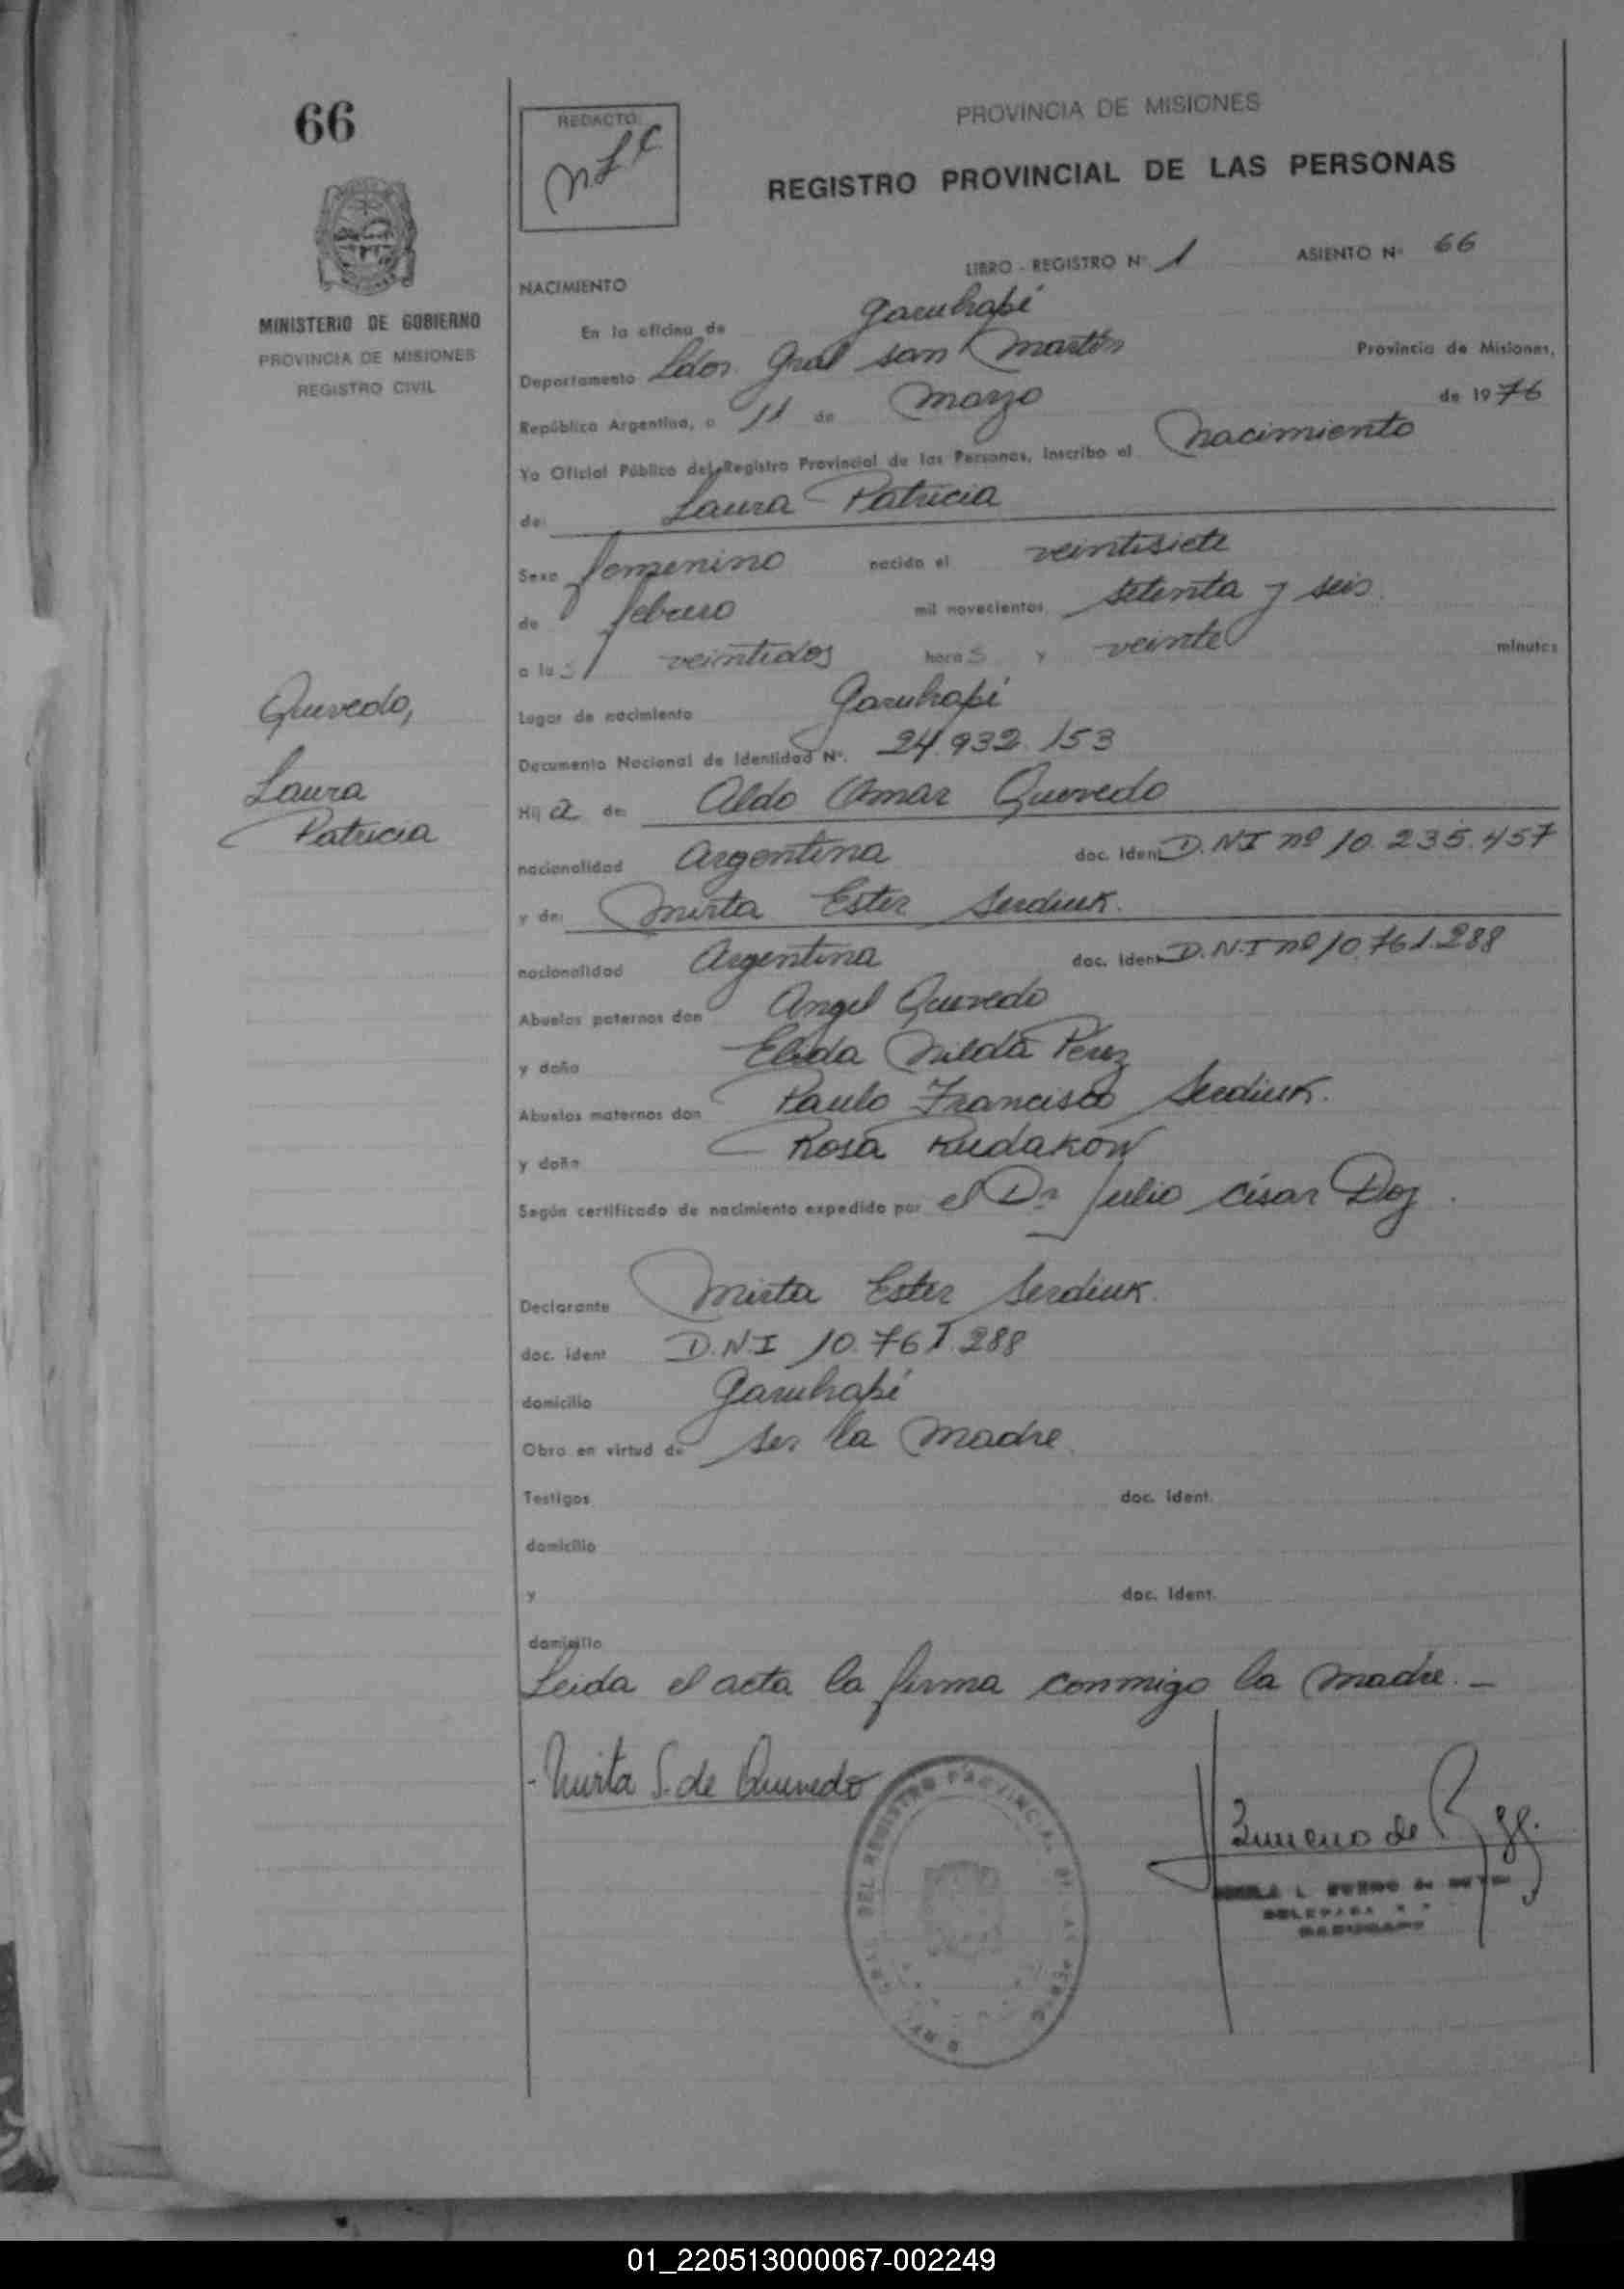 66
MINISTERIO DE GOBIERNO
PROVINCIA DE MISIONES
REGISTRO CIVIL
Quevedo,
Laura
Patricia
REDACTO:
PROVINCIA DE MISIONES
REGISTRO PROVINCIAL DE LAS PERSONAS
LIBRO - REGISTRO Nº 1 ASIENTO Nº 66
NACIMIENTO
En la oficina de Garuhapé
Departamento Ldor. Gral san Martín Provincia de Misiones,
República Argentina, a 11 de Marzo de 1976
Yo Oficial Público del Registro Provincial de las Personas, inscribo el Nacimiento
de: Laura Patricia
Sexo femenino nacido el veintisiete
de febrero mil novecientos setenta y seis
a las veintidos horas y veinte minutos
Lugar de nacimiento Garuhapé
Documento Nacional de Identidad Nº. 24.932.153
Hija de: Aldo Omar Quevedo
nacionalidad Argentina doc. ident. D.N.I nº 10.235.457
y de: Mirta Ester Serdiuk.
nacionalidad Argentina doc. ident. D.N.I nº 10.761.288
Abuelos paternos don Angel Quevedo
y doña Elida Nilda Pérez
Abuelos maternos don Paulo Francisco Serdiuk.
y doña Rosa Rudakow
Según certificado de nacimiento expedido por el Dr Julio césar Doz.
Declarante Mirta Ester Serdiuk.
doc. ident D.N.I 10.761.288
domicilio Garuhapé
Obra en virtud de ser la Madre.
Testigos doc. ident.
domicilio
y doc. ident.
domicilio
Leida el acta la firma conmigo la Madre. -
Mirta S. de Quevedo
DEL REGISTRO PROVINCIAL DE LAS
01_220513000067-002249